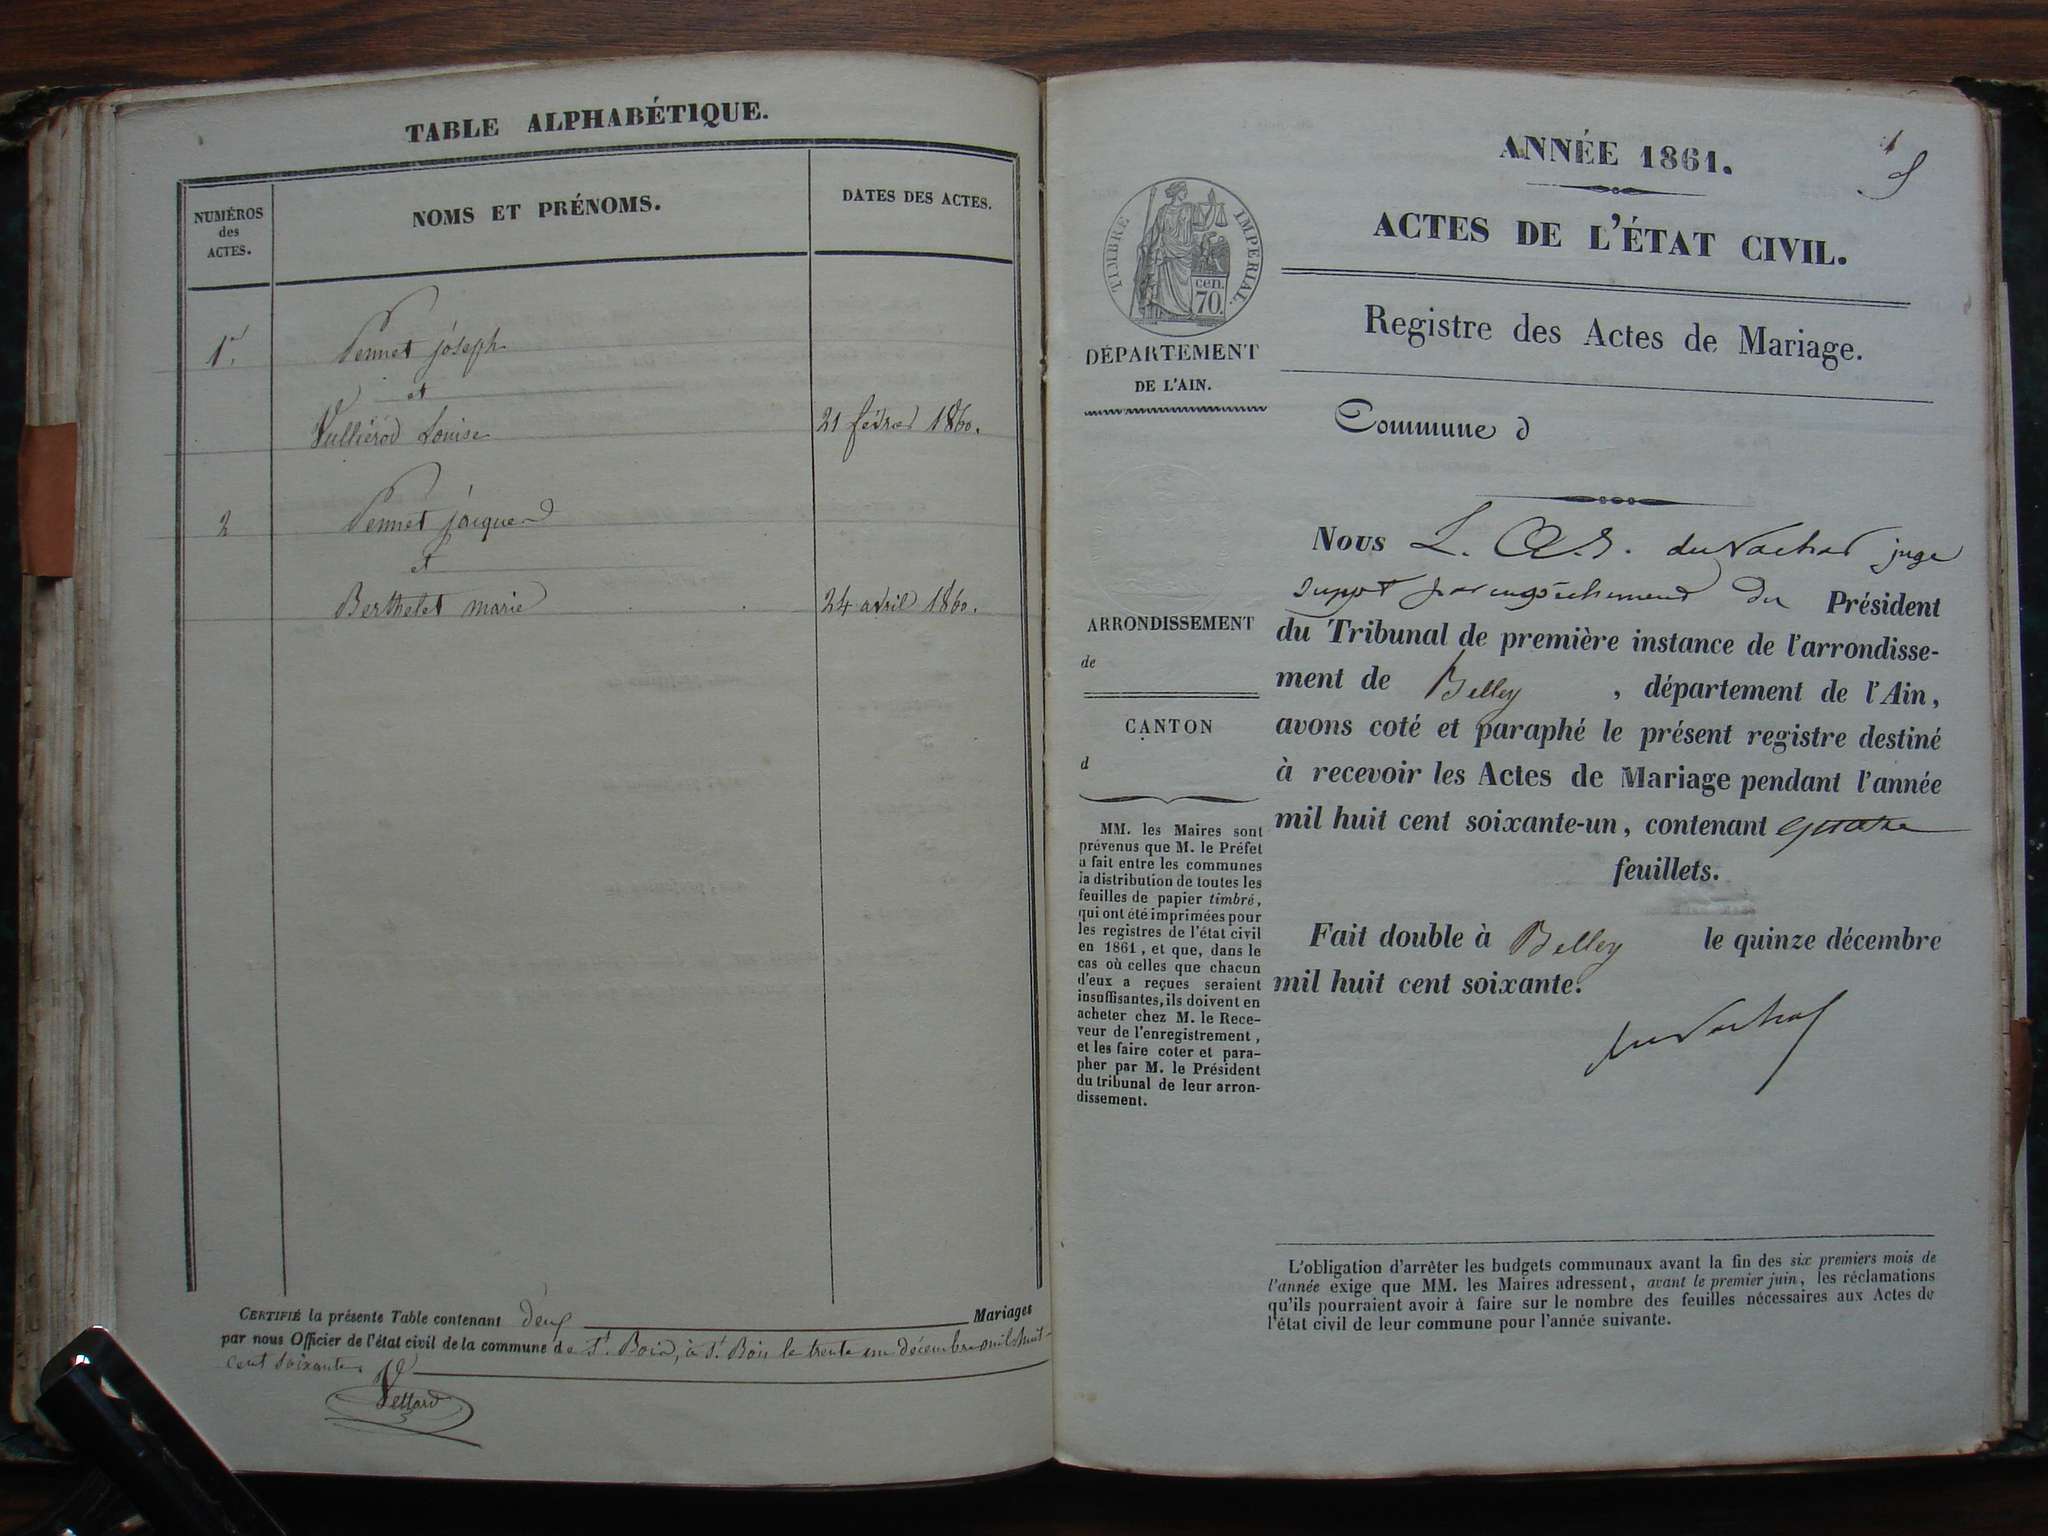 TABLE ALPHABÉTIQUE.
NUMÉROS
des
ACTES.
NOMS ET PRÉNOMS.
DATES DES ACTES.
1er
Pennet joseph
et
Vulliérod Louise
21 février 1860.
2
Pennet jacques
et
Berthelet marie
24 avril 1860.
CERTIFIÉ la présente Table contenant deux Mariages
par nous Officier de l'état civil de la commune de St. Bois, à St. Bois le trente un décembre mil huit
cent soixante.
ANNÉE 1861.
ACTES DE L'ÉTAT CIVIL.
Registre des Actes de Mariage.
TIMBRE IMPERIAL.
cen.
70.
DÉPARTEMENT
DE L'AIN.
Commune d
ARRONDISSEMENT
de
CANTON
d
MM. les Maires sont
prévenus que M. le Préfet
a fait entre les communes
la distribution de toutes les
feuilles de papier timbré,
qui ont été imprimées pour
les registres de l'état civil
en 1861, et que, dans le
cas où celles que chacun
d'eux a reçues seraient
insuffisantes, ils doivent en
acheter chez M. le Rece-
veur de l'enregistrement,
et les faire coter et para-
pher par M. le Président
du tribunal de leur arron-
dissement.
Nous juge
suppt par empêchement du Président
du Tribunal de première instance de l'arrondisse-
ment de Belley, département de l'Ain,
avons coté et paraphé le présent registre destiné
à recevoir les Actes de Mariage pendant l'année
mil huit cent soixante-un, contenant quatre
feuillets.
Fait double à Belley le quinze décembre
mil huit cent soixante.
L'obligation d'arrêter les budgets communaux avant la fin des six premiers mois de
l'année exige que MM. les Maires adressent, avant le premier juin, les réclamations
qu'ils pourraient avoir à faire sur le nombre des feuilles nécessaires aux Actes de
l'état civil de leur commune pour l'année suivante.